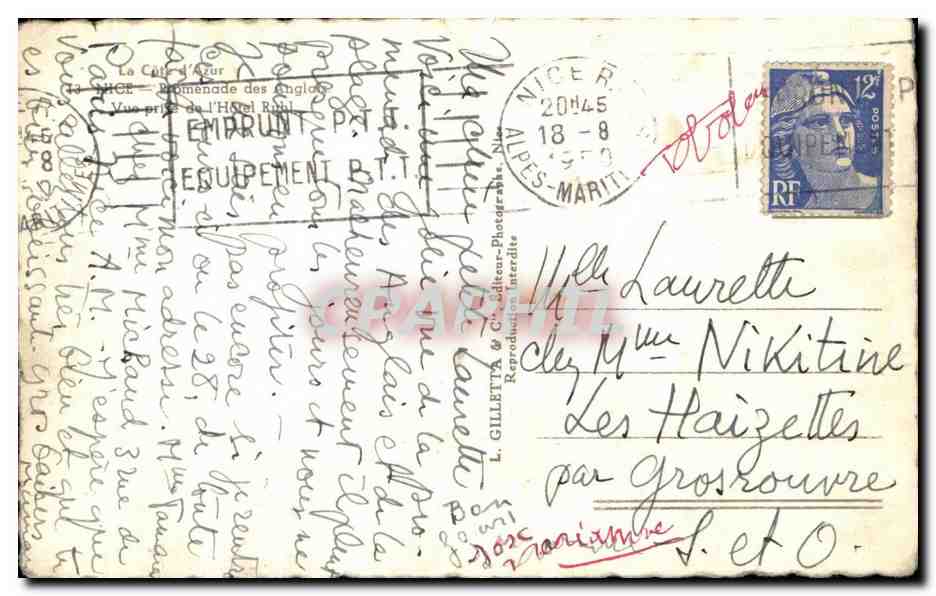 La Côte d'Azur
13 - NICE - Promenade des Anglais
Vue prise de l'Hôtel Ruhl
EMPRUNT P.T.T.
EQUIPEMENT P.T.T.
NICE R.
20H45
18-8
ALPES-MARIT
12F
POSTES
RF
L. GILLETTA & Cie, Editeur-Photographe, Nice
Reproduction Interdite
CPARHIL
Mlle Laurette
chez Mme Nikitine
Les Haizettes
par Grosrouvre
S. et O.
Ma petite Laurette
Voici une jolie vue de la Pro-
menade des Anglais et de la
plage. Malheureusement il pleut
presque tous les jours et nous ne
pouvons en profiter. -
Je ne sais pas encore si je rentre
ou le 28, de toute
façon voici mon adresse. Mme
chez Mme Michaud 3 rue de
A.M. J'espère que
Vous allez tous très bien et que tu
es obéissant. Gros baisers
Bon